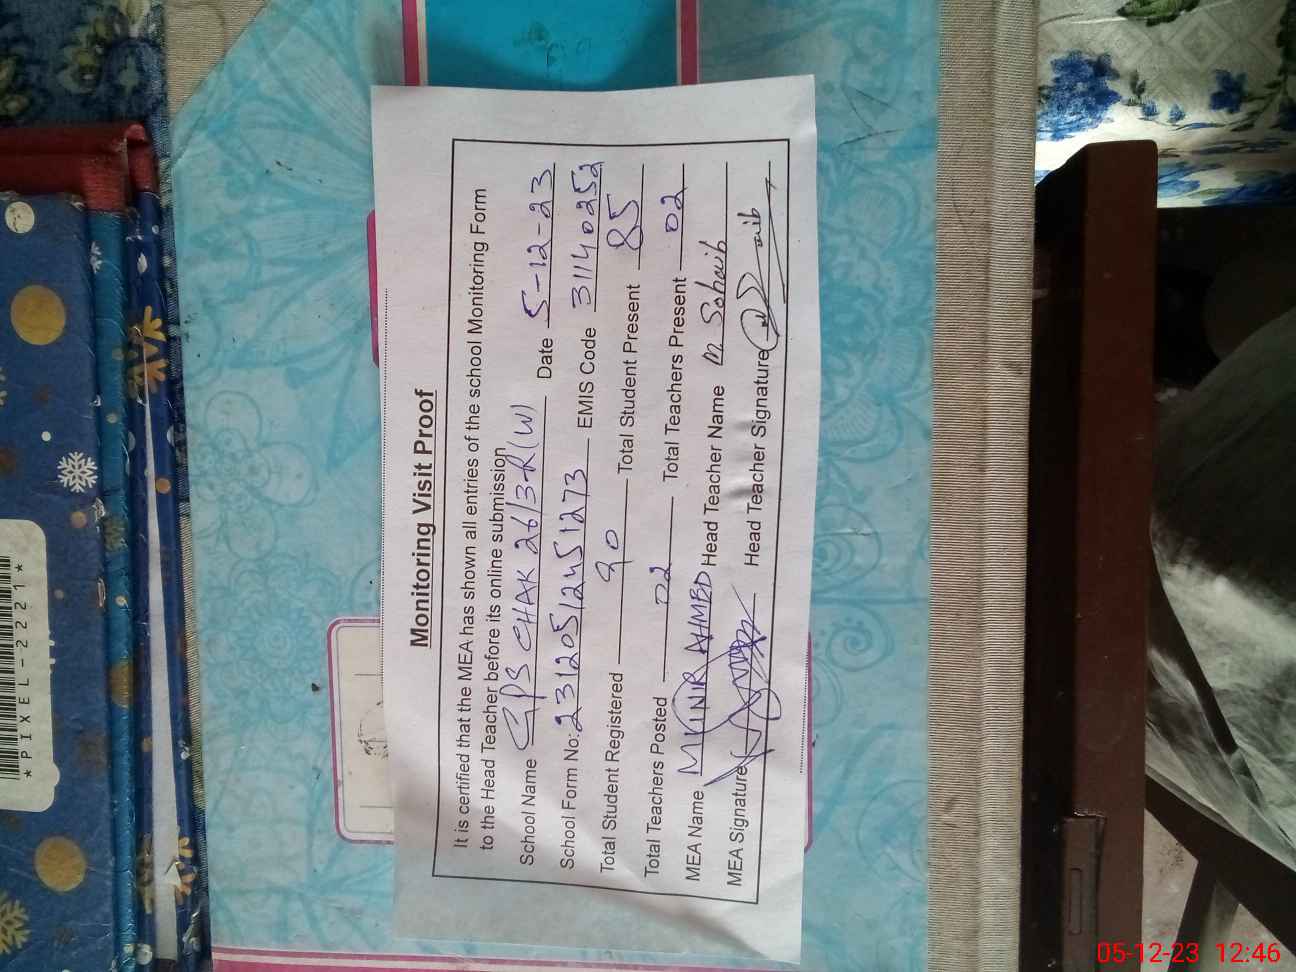 Monitoring Visit Proof
It is certified that the MEA has shown all entries of the school Monitoring Form
to the Head Teacher before its online submission
School Name GPS CHAK 26/3-R(W) Date 5-12-23
School Form No: 23120512451273 EMIS Code 31140252
Total Student Registered 90 Total Student Present 85
Total Teachers Posted 02 Total Teachers Present 02
MEA Name MUNIR AHMED Head Teacher Name M Sohaib
MEA Signature Head Teacher Signature
*PIXEL-2221*
05-12-23 12:46